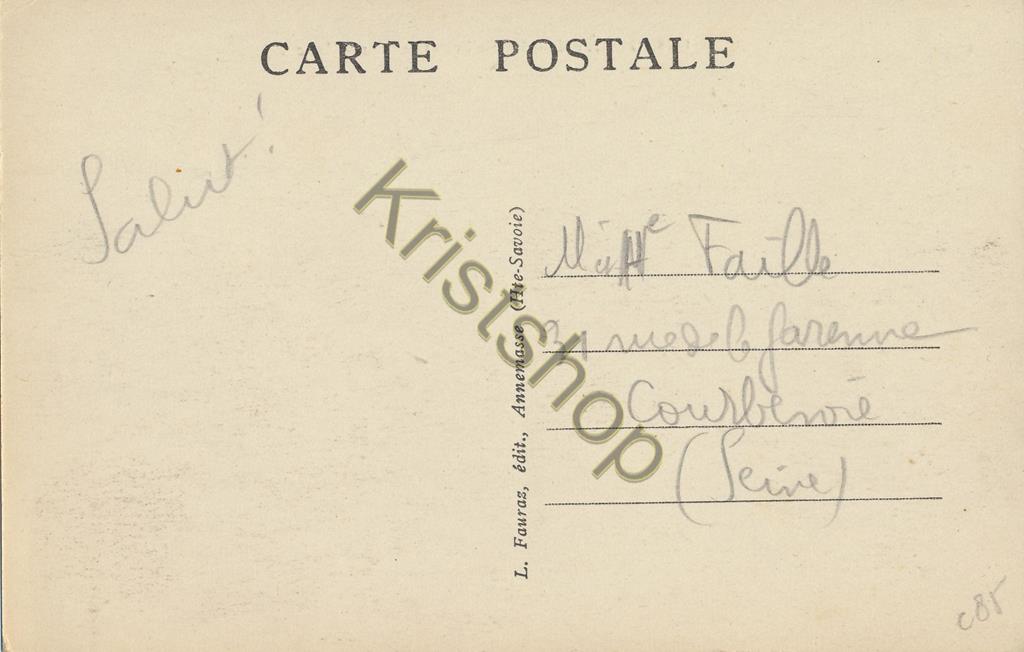 CARTE POSTALE
Salut!
L. Fauraz, édit., Annemasse (Hte-Savoie)
Kristshop
Faille
31 rue de la garenne
Courbevoie
(Seine)
c85